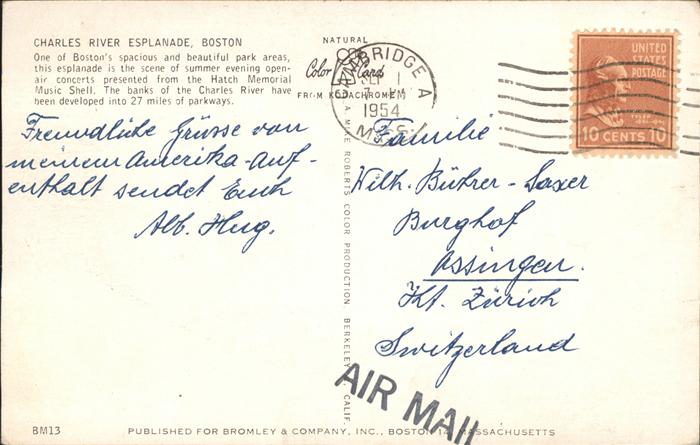 CHARLES RIVER ESPLANADE, BOSTON
One of Boston's spacious and beautiful park areas,
this esplanade is the scene of summer evening open-
air concerts presented from the Hatch Memorial
Music Shell. The banks of the Charles River have
been developed into 27 miles of parkways.
Freundliche Grüsse von
meinem Amerika-Auf-
enthalt sendet Euch
Alb. Hug.
BM13
NATURAL
Color Card
FROM KODACHROME
A MIKE ROBERTS COLOR PRODUCTION BERKELEY, CALIF.
CAMBRIDGE A
SEP 1
1954
MASS.
UNITED
STATES
POSTAGE
10 CENTS 10
Familie
Wilh. Bührer-Saxer
Burghof
Ossingen.
Kt. Zürich
Switzerland
AIR MAIL
PUBLISHED FOR BROMLEY & COMPANY, INC., BOSTON 14, MASSACHUSETTS